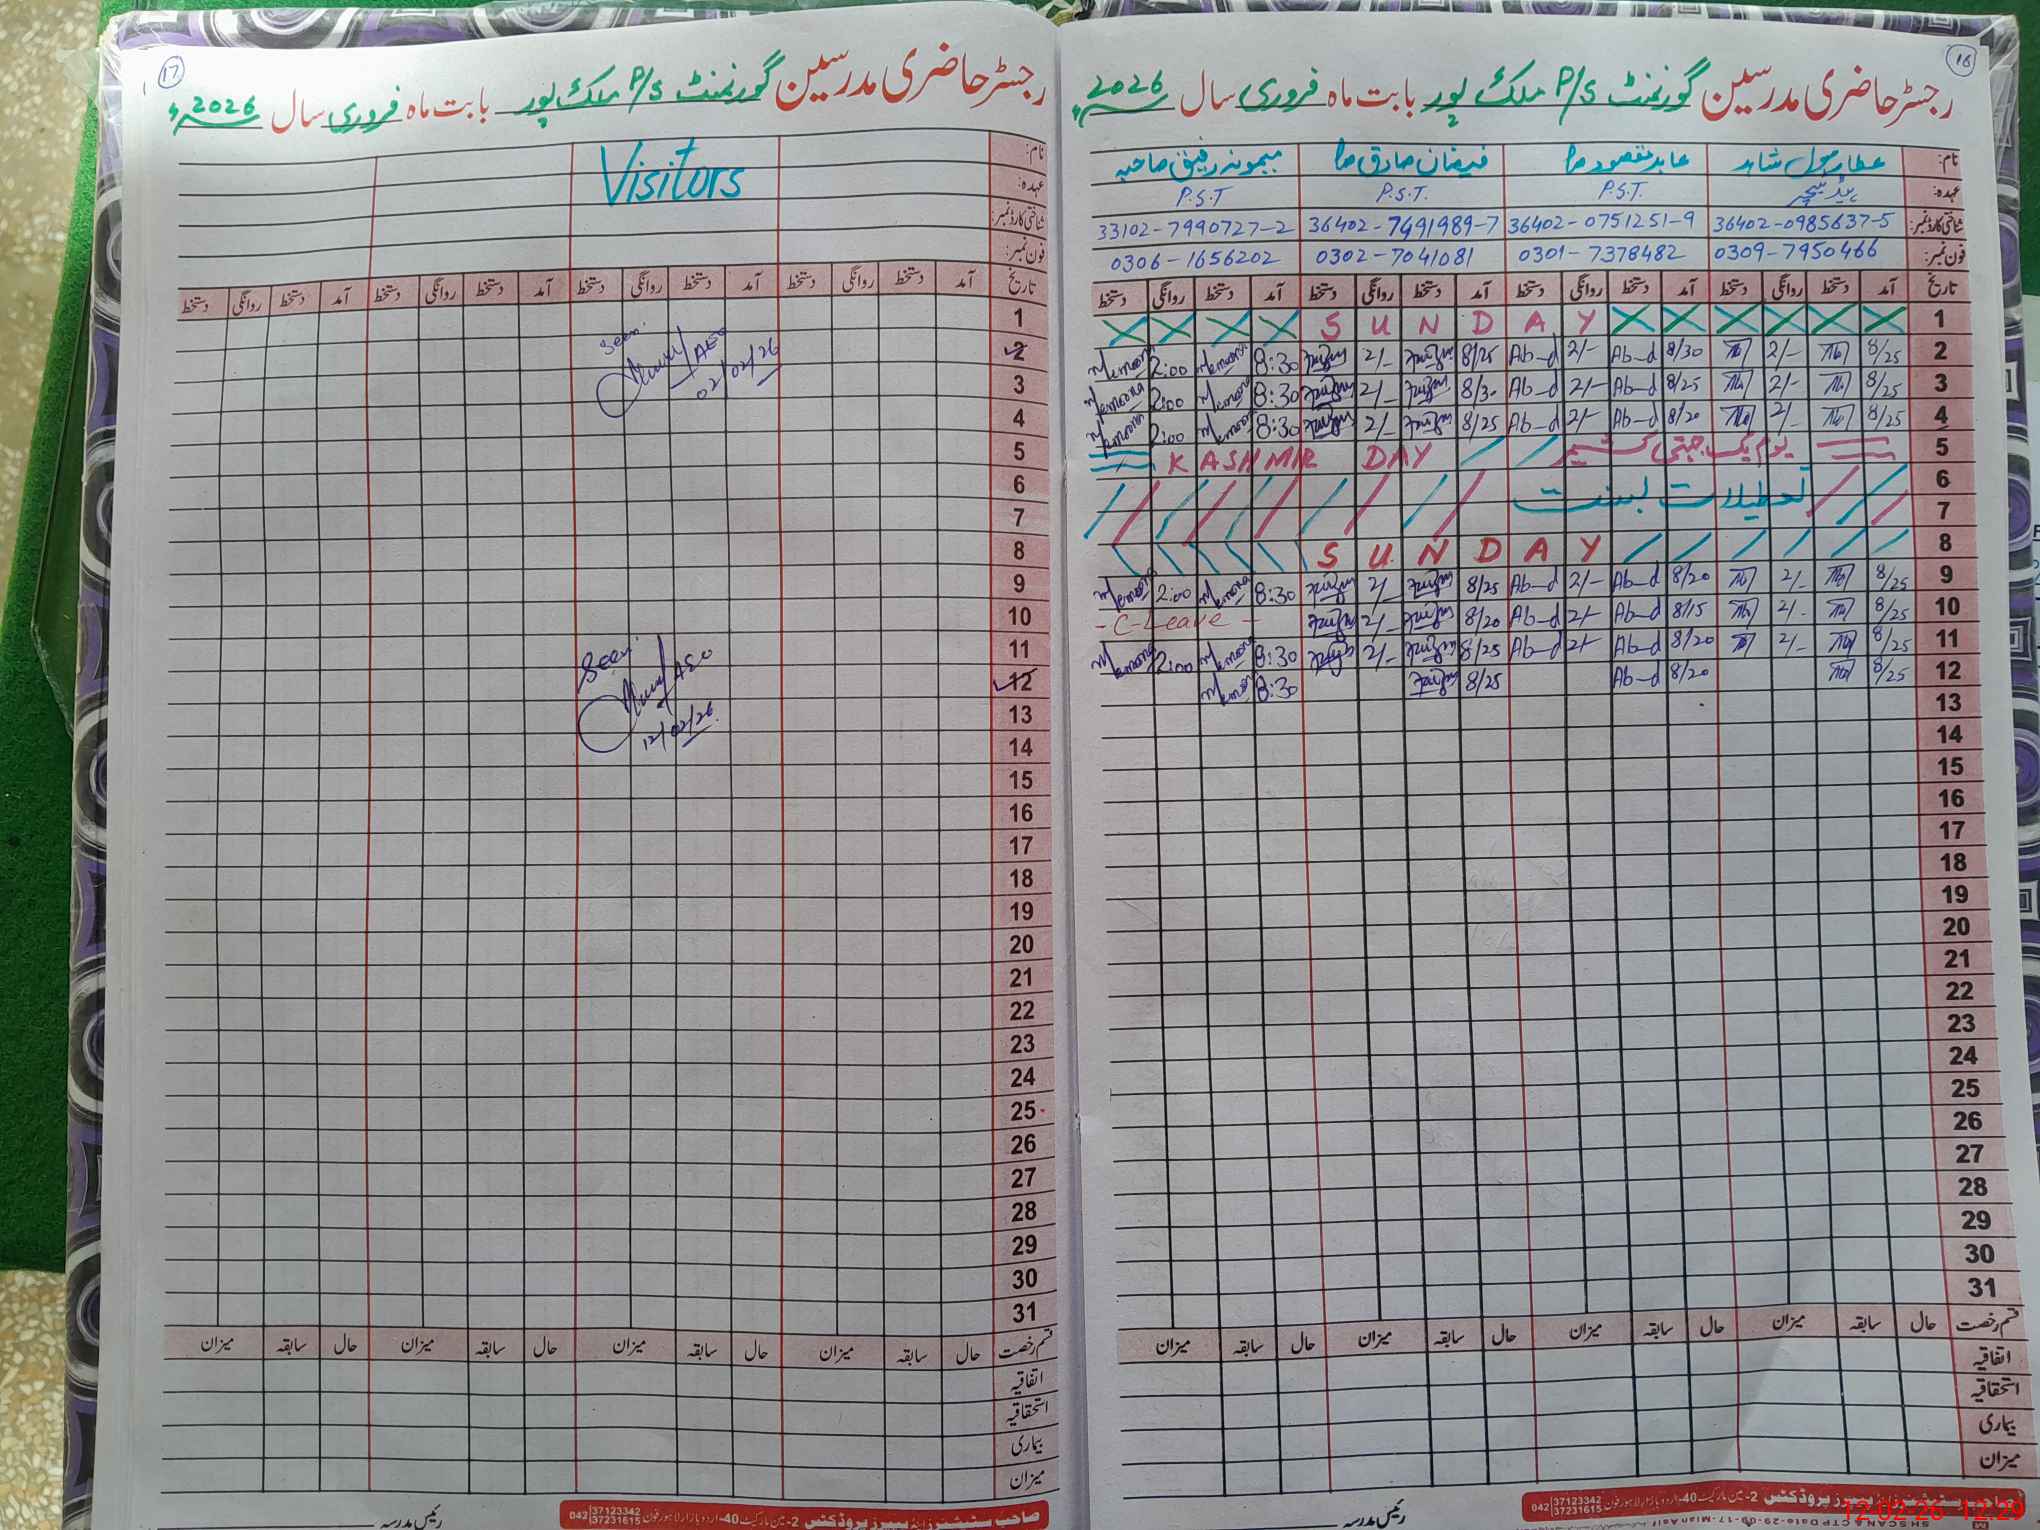 17
رجسٹر حاضری مدرسین گورنمنٹ P/S ملک پور بابت ماہ فروری سال 2026ء
نام:
Visitors
عہدہ:
شناختی کارڈ نمبر:
فون نمبر:
تاریخ آمد دستخط روانگی دستخط آمد دستخط روانگی دستخط آمد دستخط روانگی دستخط آمد دستخط روانگی دستخط
1
2 Seen AEO 02/02/26
3
4
5
6
7
8
9
10
11 Seen AEO
12 12/02/26
13
14
15
16
17
18
19
20
21
22
23
24
25
26
27
28
29
30
31
قسم رخصت حال سابقہ میزان حال سابقہ میزان حال سابقہ میزان حال سابقہ میزان
اتفاقیہ
استحقاقیہ
بیماری
میزان
رئیس مدرسہ
صاحب سٹیشنرز اینڈ پیپرز پروڈکٹس 2-مین مارکیٹ 40-اردو بازار لاہور فون 042 37123342 37231615
16
رجسٹر حاضری مدرسین گورنمنٹ P/S ملک پور بابت ماہ فروری سال 2026ء
نام: عابد مقصود صا فیضان صادق صا میمونہ رفیق صاحبہ
عہدہ: ہیڈ ٹیچر P.S.T. P.S.T. P.S.T
شناختی کارڈ نمبر: 36402-0985637-5 36402-0751251-9 36402-7491989-7 33102-7990727-2
فون نمبر: 0309-7950466 0301-7378482 0302-7041081 0306-1656202
تاریخ آمد دستخط روانگی دستخط آمد دستخط روانگی دستخط آمد دستخط روانگی دستخط آمد دستخط روانگی دستخط
1 SUNDAY
2 8/25 2/- 8/30 Ab-d 2/- Ab-d 8/25 2/- 8:30 Memoona 2:00 Memoona
3 8/25 2/- 8/25 Ab-d 2/- Ab-d 8/30 2/- 8:30 Memoona 2:00 Memoona
4 8/25 2/- 8/20 Ab-d 2/- Ab-d 8/25 2/- 8:30 Memoona 2:00 Memoona
5 یوم یک جہتی کشمیر KASHMIR DAY
6 تعطیلات بسنت
7
8 SUNDAY
9 8/25 2/- 8/20 Ab-d 2/- Ab-d 8/25 2/- 8:30 Memoona 2:00 Memoona
10 8/25 2/- 8/15 Ab-d 2/- Ab-d 8/20 2/- - C-Leave -
11 8/25 2/- 8/20 Ab-d 2/- Ab-d 8/25 2/- 8:30 Memoona 2:00 Memoona
12 8/25 8/20 Ab-d 8/25 8:30 Memoona
13
14
15
16
17
18
19
20
21
22
23
24
25
26
27
28
29
30
31
قسم رخصت حال سابقہ میزان حال سابقہ میزان حال سابقہ میزان حال سابقہ میزان
اتفاقیہ
استحقاقیہ
بیماری
میزان
رئیس مدرسہ
صاحب سٹیشنرز اینڈ پیپرز پروڈکٹس 2-مین مارکیٹ 40-اردو بازار لاہور فون 042 37123342 37231615
12-02-26 12:29